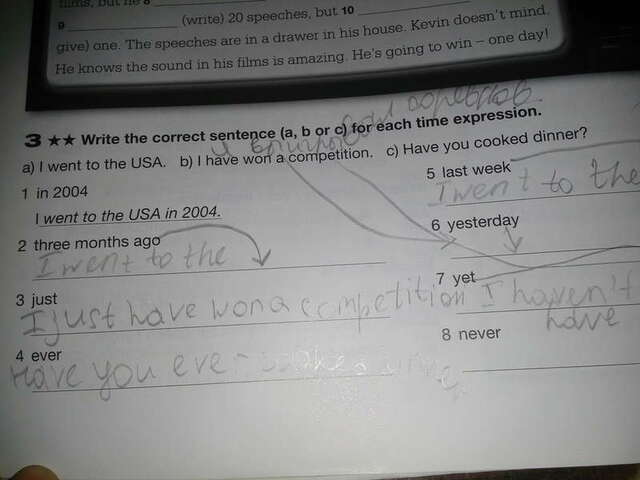 films, but he 8
9 (write) 20 speeches, but 10
give) one. The speeches are in a drawer in his house. Kevin doesn't mind.
He knows the sound in his films is amazing. He's going to win – one day!
3 ★★ Write the correct sentence (a, b or c) for each time expression.
a) I went to the USA. b) I have won a competition. c) Have you cooked dinner?
1 in 2004
I went to the USA in 2004.
2 three months ago
I went to the
3 just
I just have won a competition
4 ever
Have you eve
5 last week
I went to the
6 yesterday
7 yet
I haven't
have
8 never